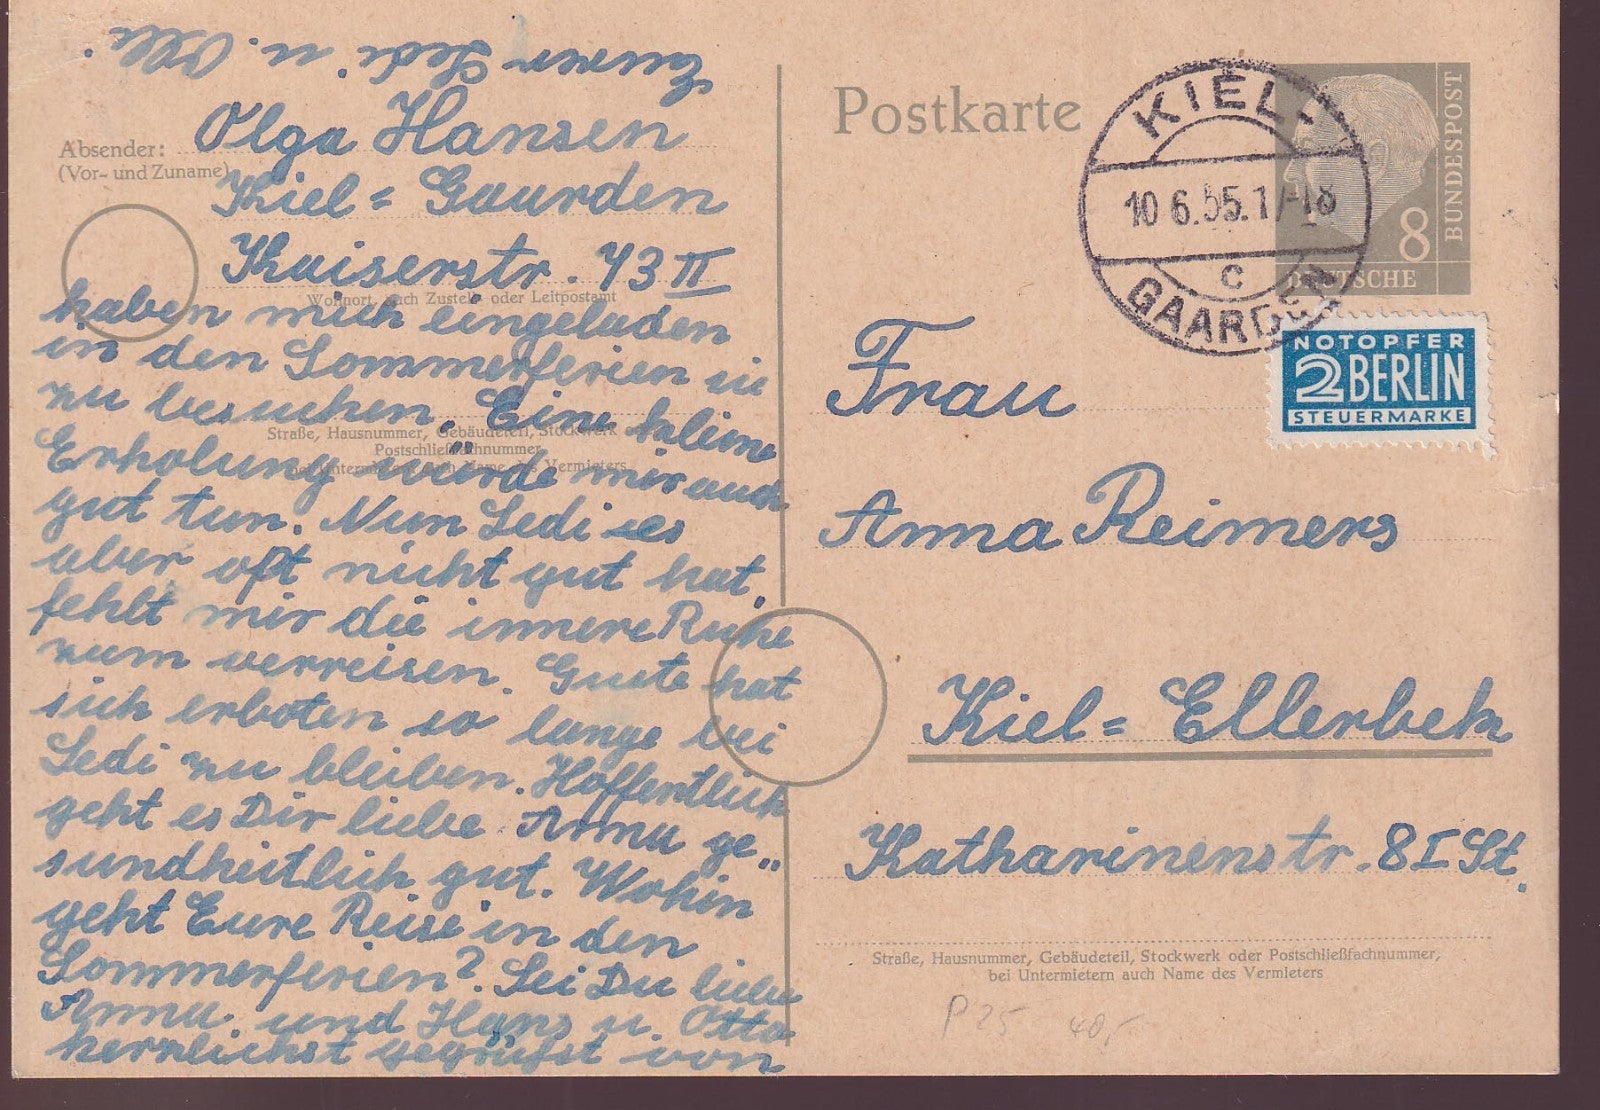 Olga Hansen
Absender:
(Vor- und Zuname)
Kiel = Gaarden
Kaiserstr. 73 II
Wohnort, auch Zustell- oder Leitpostamt
haben mich eingeladen
in den Sommerferien sie
zu besuchen. Eine kleine
Straße, Hausnummer, Gebäudeteil, Stockwerk oder
Postschließfachnummer,
bei Untermietern auch Name des Vermieters
Erholung würde mir auch
gut tun. Nun Ledi es
aber oft nicht gut hat,
fehlt mir die innere Ruhe
zum verreisen. Guste hat
sich erboten so lange bei
Ledi zu bleiben. Hoffentlich
geht es Dir liebe Anna ge"
sundheitlich gut. Wohin
geht Eure Reise in den
Sommerferien? Sei Du liebe
Anna, und Hans u. Otto
herzlichst gegrüßt von
Eurer Ledi u. Olli.
Postkarte
KIEL-
10.6.55.17-18
c
GAARDEN
8
DEUTSCHE
BUNDESPOST
NOTOPFER
2 BERLIN
STEUERMARKE
Frau
Anna Reimers
Kiel = Ellerbek
Katharinenstr. 8 I St.
Straße, Hausnummer, Gebäudeteil, Stockwerk oder Postschließfachnummer,
bei Untermietern auch Name des Vermieters
P 25 40,-